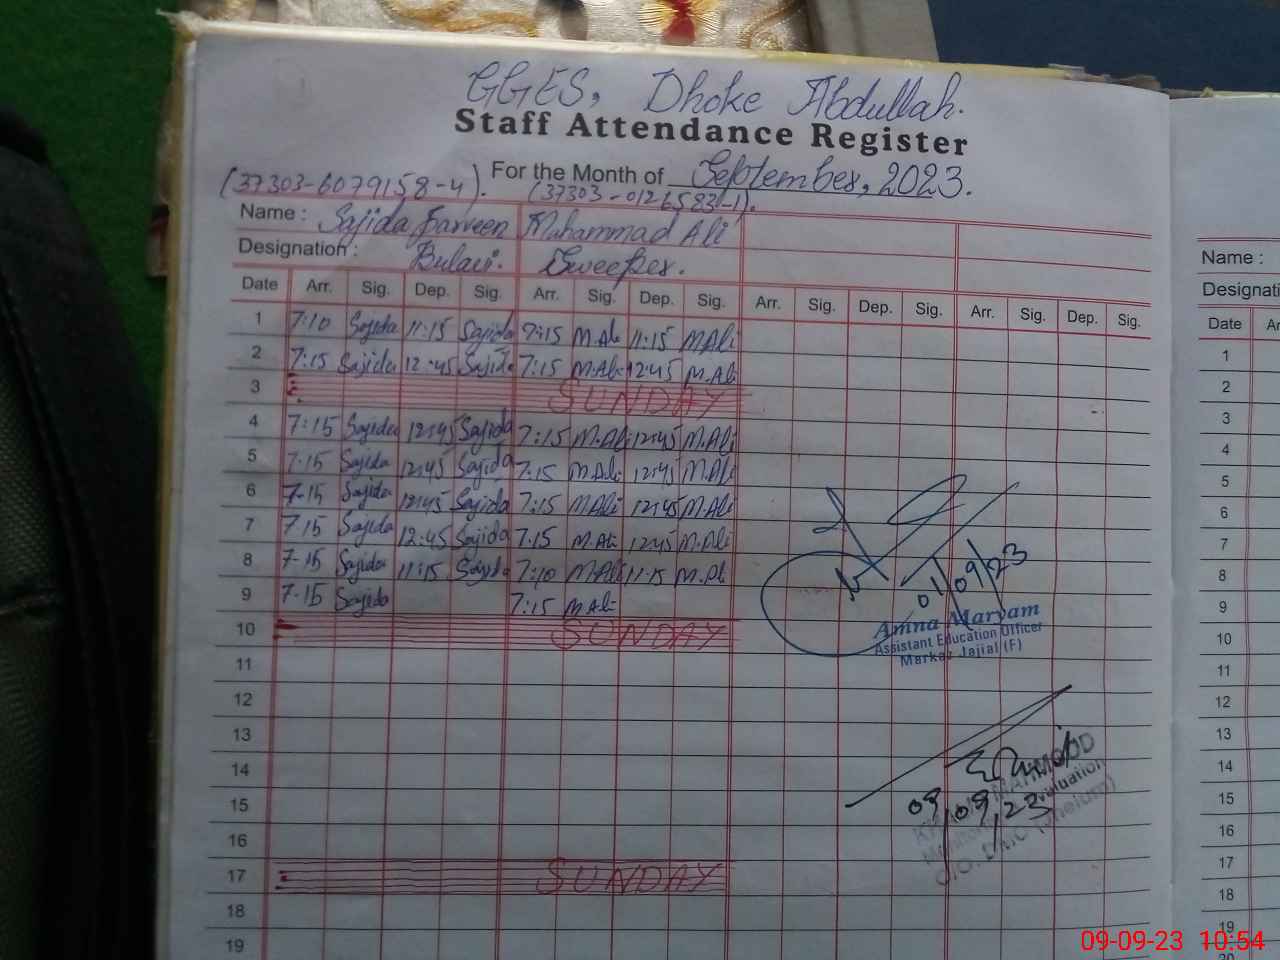 GGES, Dhoke Abdullah.
Staff Attendance Register
For the Month of September, 2023.
(37303-6079158-4). (37303-0126583-1).
Name : Sajida Parveen Muhammad Ali
Designation : Bulavi. Sweeper.
Date Arr. Sig. Dep. Sig. Arr. Sig. Dep. Sig. Arr. Sig. Dep. Sig. Arr. Sig. Dep. Sig.
1 7:10 Sajida 11:15 Sajida 7:15 M.Ali 11:15 M.Ali
2 7:15 Sajida 12:45 Sajida 7:15 M.Ali 12:45 M.Ali
3 SUNDAY
4 7:15 Sajida 12:45 Sajida 7:15 M.Ali 12:45 M.Ali
5 7-15 Sajida 12:45 Sajida 7:15 M.Ali 12:45 M.Ali
6 7-15 Sajida 12:45 Sajida 7:15 M.Ali 12:45 M.Ali
7 7-15 Sajida 12:45 Sajida 7:15 M.Ali 12:45 M.Ali
8 7-15 Sajida 11:15 Sajida 7:10 M.Ali 11:15 M.Ali
9 7-15 Sajida 7:15 M.Ali
10 SUNDAY
11
12
13
14
15
16
17 SUNDAY
18
19
01/09/23
Amna Maryam
Assistant Education Officer
Markaz Jajial (F)
MAHMOOD
09/09/23
Name :
Designati
Date Ar
1
2
3
4
5
6
7
8
9
10
11
12
13
14
15
16
17
18
19
20
09-09-23 10:54